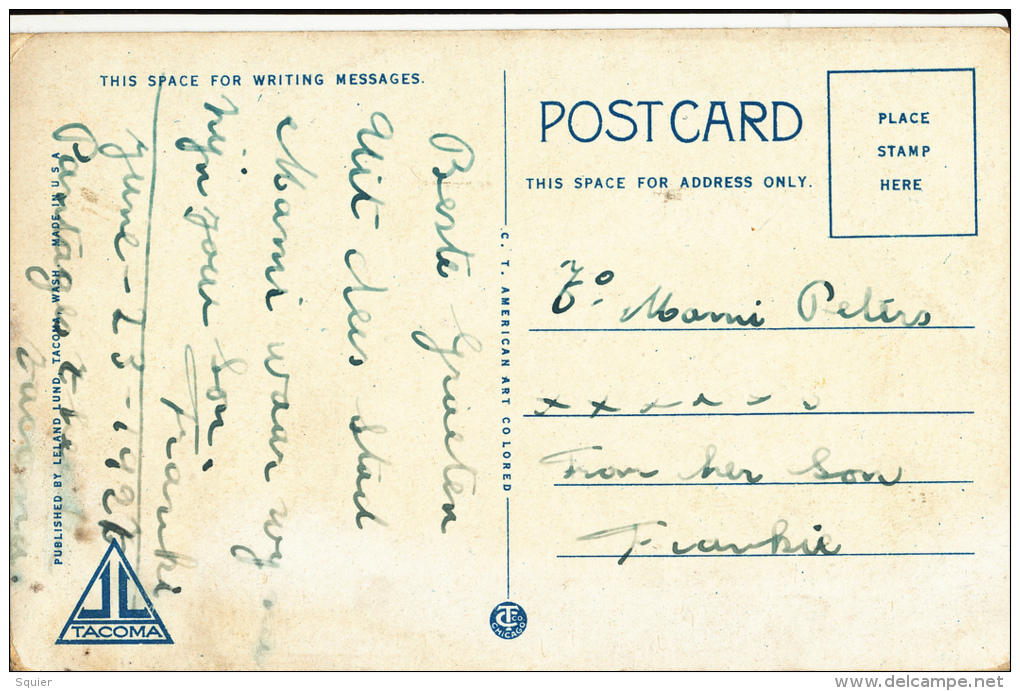 THIS SPACE FOR WRITING MESSAGES.
Beste Groeten
Uit deus stad
Mami waar wy
zijn your Son
Franki
June - 23 - 192
Pantages
PUBLISHED BY LELAND LUND, TACOMA, WASH. MADE IN U S A
TACOMA
C. T. AMERICAN ART COLORED
CTCO CHICAGO
POSTCARD
THIS SPACE FOR ADDRESS ONLY.
PLACE
STAMP
HERE
To. Mami Peters
x x x x x x
From her Son
Frankie
Squier
delcampe.net